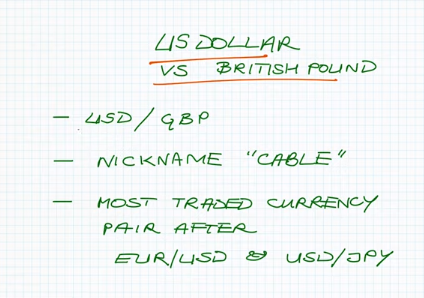 US DOLLAR
VS BRITISH POUND
- USD/GBP
- NICKNAME "CABLE"
- MOST TRADED CURRENCY
PAIR AFTER
EUR/USD & USD/JPY